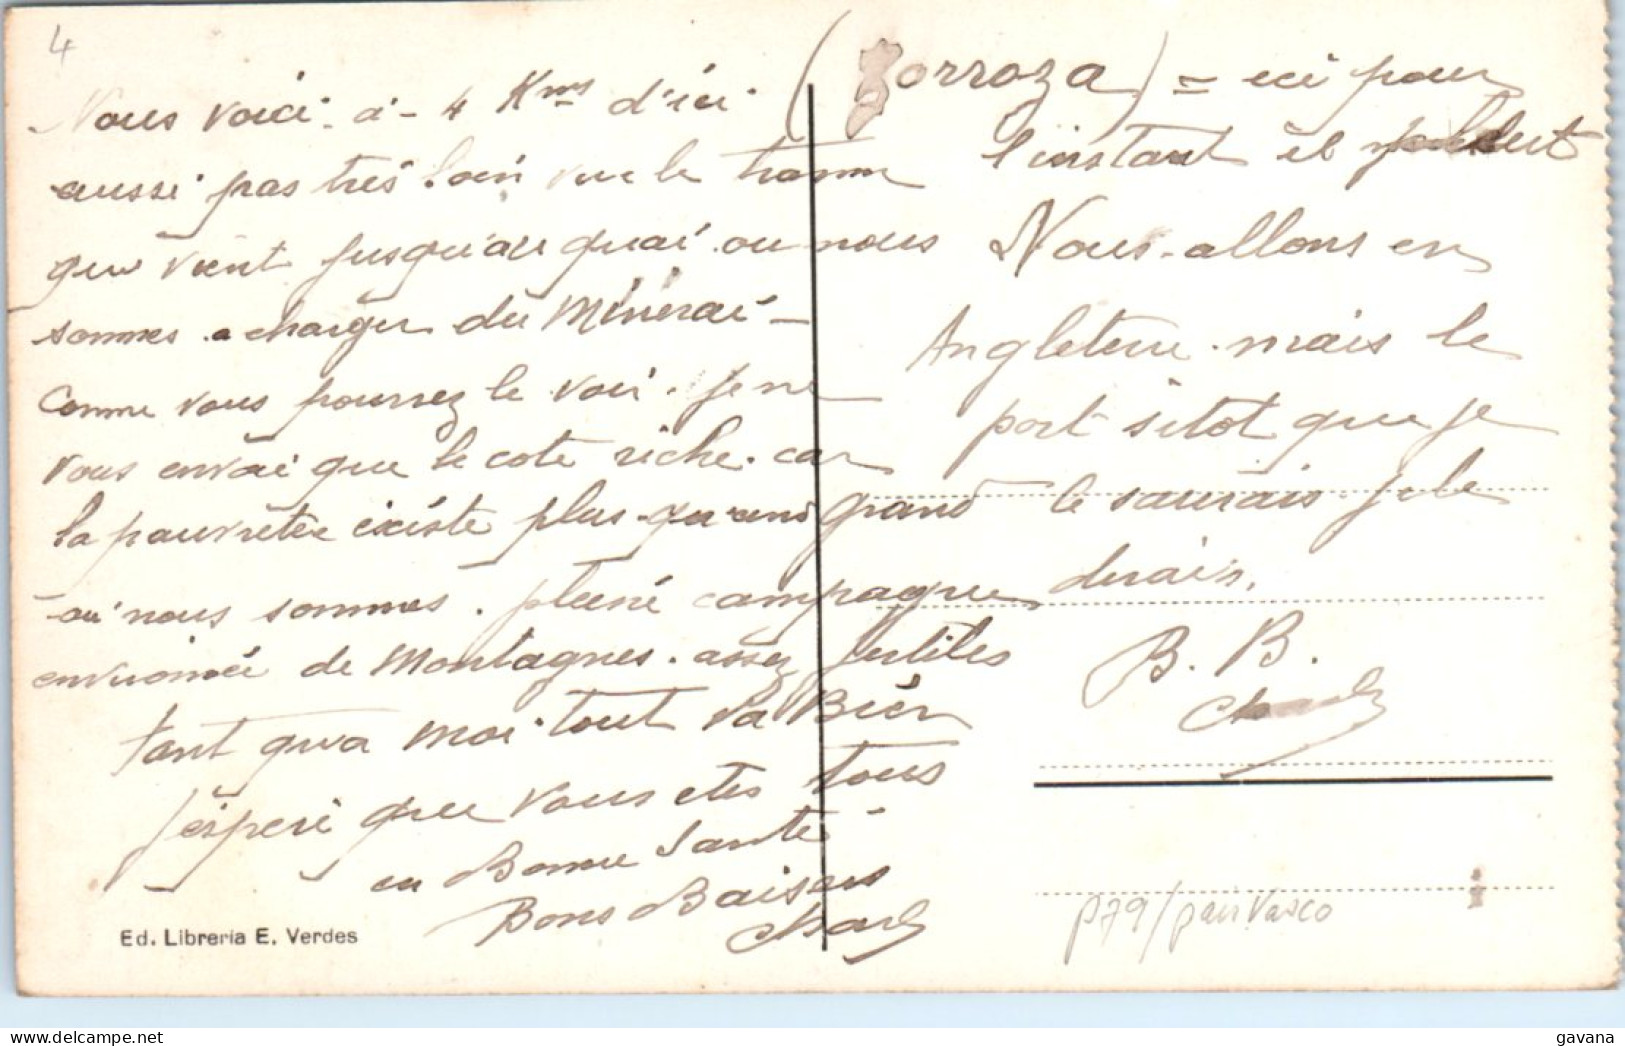 4
Nous voici - à - 4 Kms d'ici (Zorroza) = ici pour
aussi pas très loin vue le tramm
que vient jusqu'au quai ou nous
sommes a charger du Minerai -
Comme vous pourrez le voir. Je ne
vous envoi que le coté riche. car
la pauvretée existe plus qu'en grand
où nous sommes. pleine campagne
environnée de Montagnes. assez fertiles
tant qu'a moi tout va Bien
J'espere que vous etes tous
en Bonne Santé
Bons Baisers
Charles
l'instant il pleut
Nous allons en
Angleterre mais le
port sitot que je
le saurais je le
dirais,
B. B.
Charles
Ed. Librería E. Verdes
P79/pais Vasco
https://www.delcampe.net
gavana